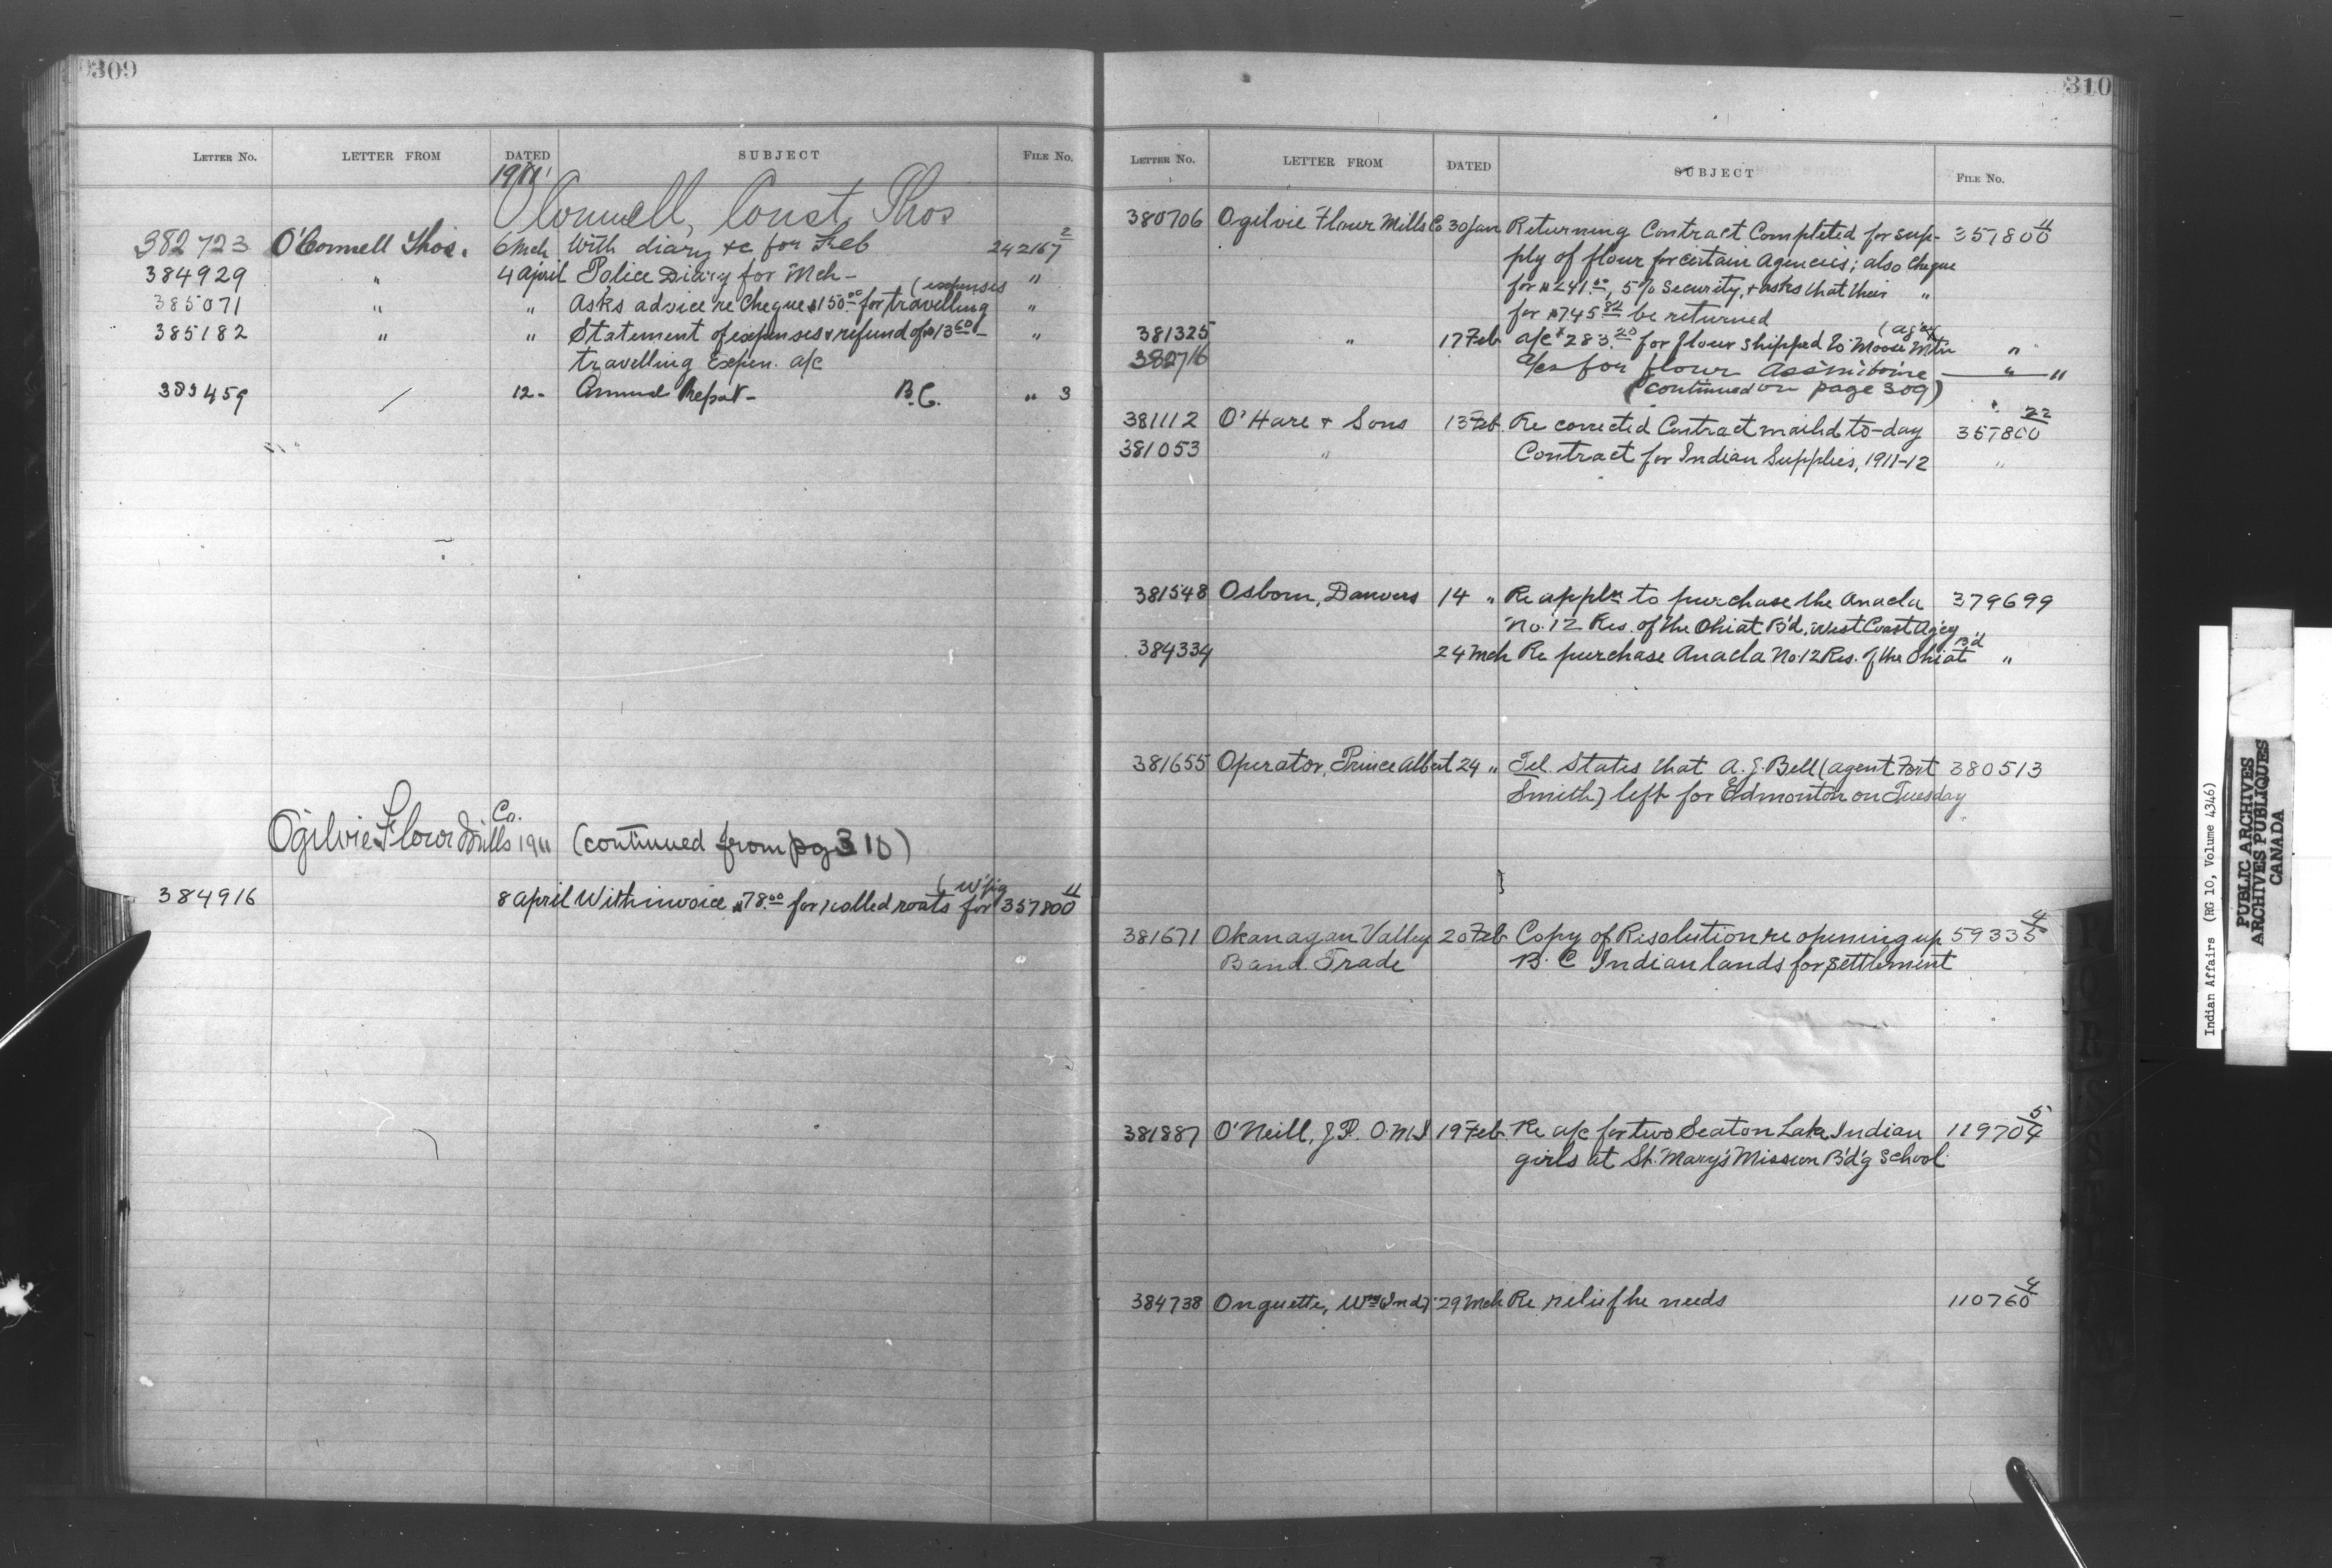 309
LETTER No. LETTER FROM DATED SUBJECT FILE No.
1911
O'Connell, Const. Thos
382723 O'Connell Thos. 6 Mch With diary &c for Feb 242167 2
384929 " 4 april Police Diary for Mch - "
(expenses
385071 " " Asks advice re Cheque $150.00 for travelling "
385182 " " Statement of expenses & refund of $13.60 - "
travelling Expen. a/c
12 - Annual Report - B.C. " 3
Ogilvie Flour Mills Co. 1911 (continued from pg 310)
(W'pig
384916 8 april With invoice $78.00 for rolled roats for 357800 11
310
LETTER No. LETTER FROM DATED SUBJECT FILE No.
380706 Ogilvie Flour Mills Co 30 Jan Returning Contract Completed for sup- 357800 11
ply of flour for certain agencies; also Cheque
for $241.00, 5% security, & asks that their "
for $745.82 be returned
(Ag'cy
381325 " 17 Feb a/c $283.20 for flour shipped to Moose Mtn "
382716 a/cs for flour Assiniboine " "
(continued on page 309)
381112 O'Hare & Sons 13 Feb. Re corrected Contract mailed to-day 357800 22
381053 " Contract for Indian Supplies, 1911-12 "
381548 Osborn, Danvers 14 " Re appln to purchase the Anacla 379699
No. 12 Res. of the Ohiat B'd, West Coast Ag'cy
384334 24 Mch Re purchase Anacla No. 12 Res. of the Ohiat B'd "
381655 Operator, Prince Albert 24 " Tel. States that A.J. Bell (agent Fort 380513
Smith) left for Edmonton on Tuesday
381671 Okanagan Valley 20 Feb Copy of Resolution re opening up 59335 4
B and Trade B.C Indian lands for settlement
381887 O'Neill, J.P. O.M.I 19 Feb. Re a/c for two Seaton Lake Indian 119704 5
girls at St. Mary's Mission B'd'g School
384738 Onguette, Wm (Ind) 29 Mch Re relief he needs 110760 4
Indian Affairs (RG 10, Volume 4346)
PUBLIC ARCHIVES
ARCHIVES PUBLIQUES
CANADA